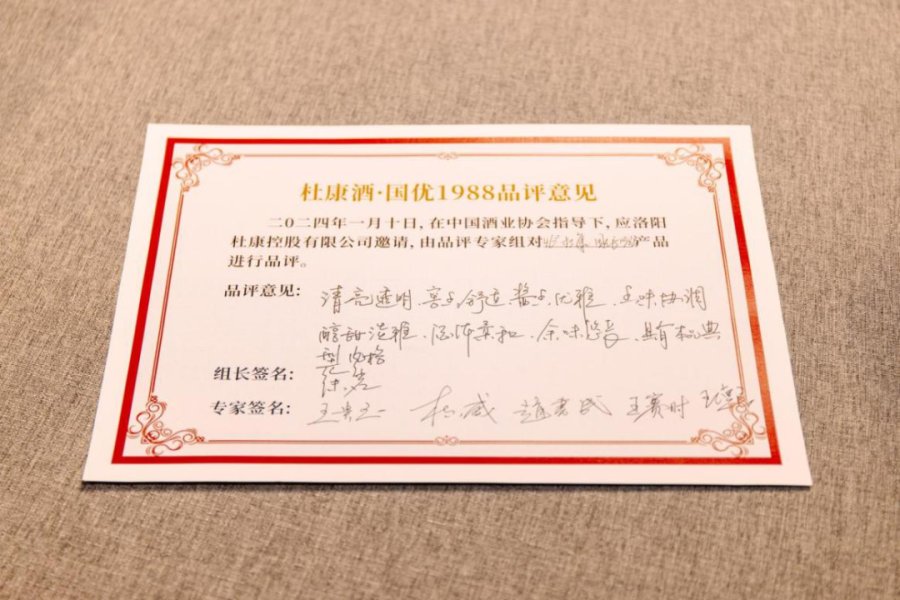 杜康酒·国优1988品评意见
二〇二四年一月十日,在中国酒业协会指导下,应洛阳
杜康控股有限公司邀请,由品评专家组对产品
进行品评。
品评意见: 清亮透明、窖香舒适、酱香优雅、五味协调
醇甜淡雅、酒体柔和、余味悠长、具有本品典
型风格
组长签名:
专家签名: 王贵玉 杨威 赵书民 王赛时